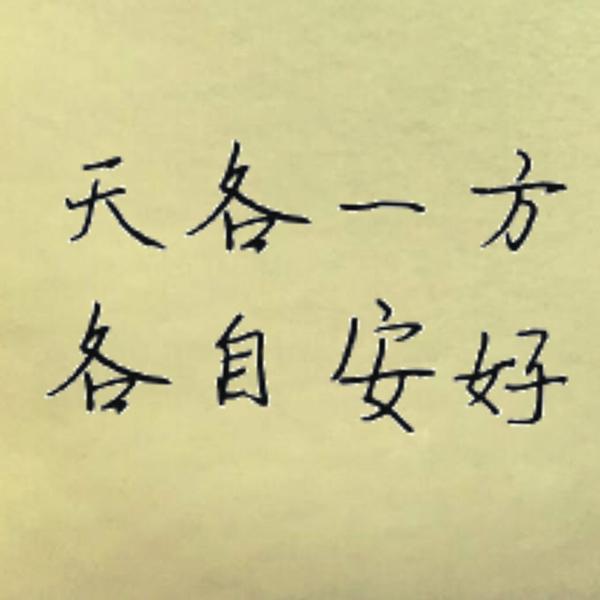 天各一方
各自安好